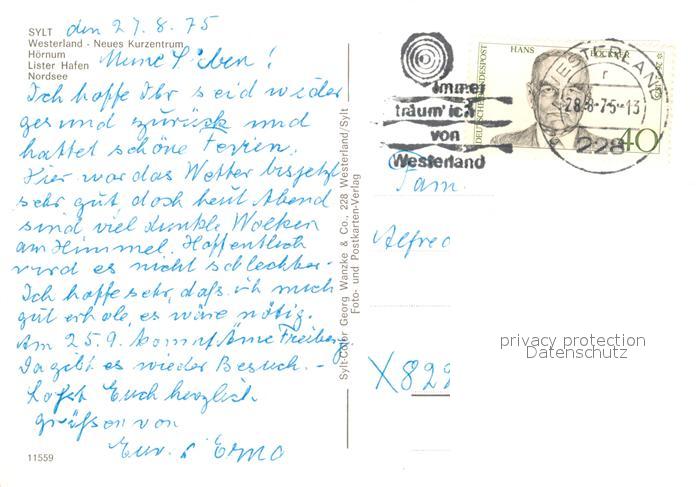 SYLT
Westerland - Neues Kurzentrum
Hörnum
Lister Hafen
Nordsee
den 27.8.75
Meine Lieben!
Ich hoffe Ihr seid wieder
gesund zurück und
hattet schöne Ferien.
Hier war das Wetter bisjetzt
sehr gut, doch heut Abend
sind viel dunkle Wolken
am Himmel. Hoffentlich
wird es nicht schlechter.-
Ich hoffe sehr, dass ich mich
gut erhole, es wäre nötig.
Am 25.9. kommt Freiberg.
Da gibt es wieder Besuch. -
Lasst Euch herzlich
grüssen von
Eurer Erna
11559
Sylt-Color Georg Wanzke & Co., 228 Westerland/Sylt
Foto- und Postkarten-Verlag
Immer
träum' ich
von
Westerland
DEUTSCHE BUNDESPOST
HANS BÖCKLER
40
WESTERLAND
28.-8.-75--13
228
Fam.
Alfred
X829
privacy protection
Datenschutz